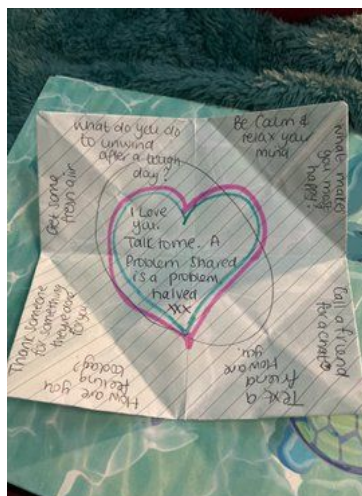 what do you do
to unwind
after a tough
day?
Be Calm &
relax your
mind
what makes
you most
happy?
Call a friend
for a chat
Text a
friend
How are
you.
How are you
feeling
today?
Thank someone
for something
they've done
for you
Get some
fresh air
I Love
you.
Talk to me. A
Problem Shared
is a problem
halved
xxx